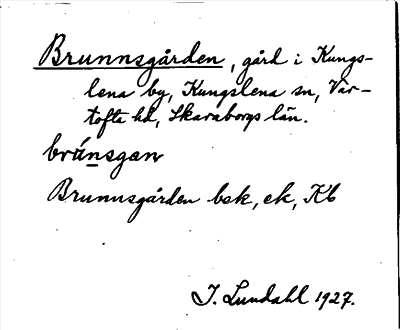 Brunnsgården, gård i Kungs-
lena by, Kungslena sn, Var-
tofta hd, Skaraborgs län.
bránsgan
Brunnsgården bsk, ek, Kb
I. Lundahl 1927.